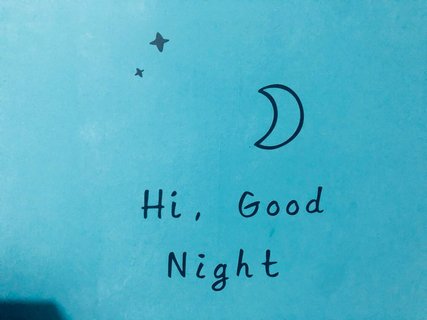 Hi, Good
Night